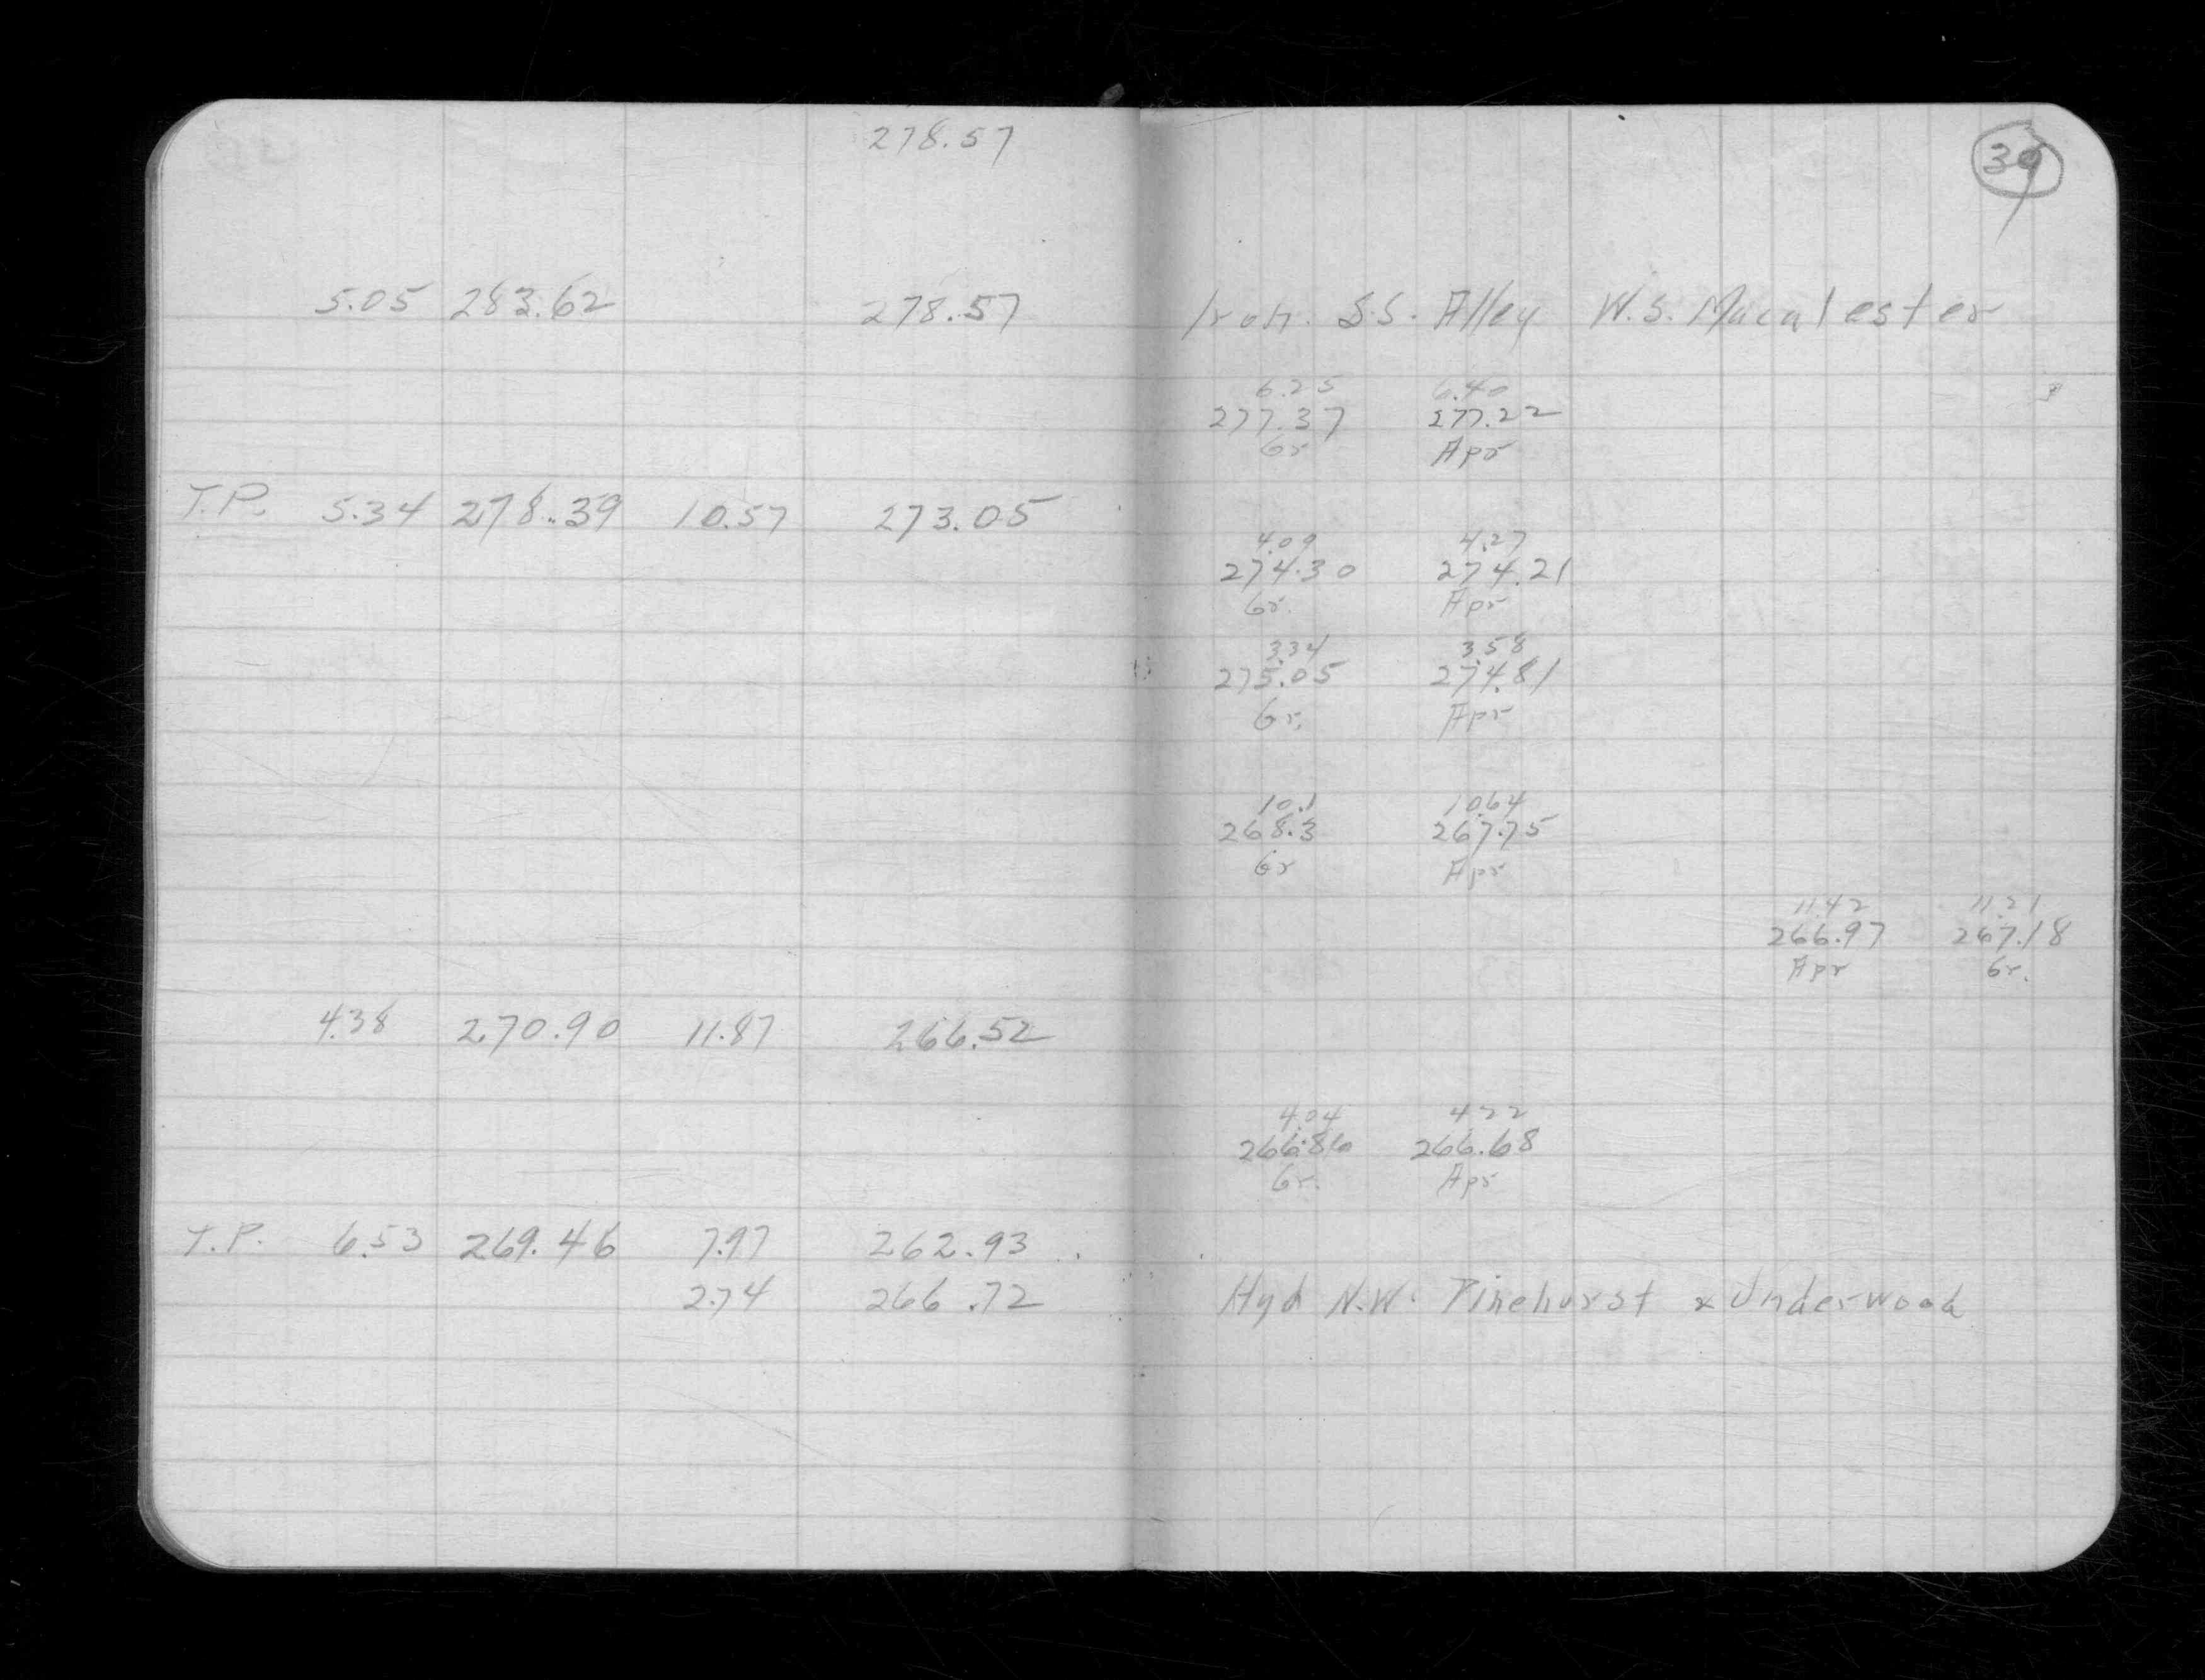 278.57
39
5.05 283.62 278.57 Iron. S.S. Alley W.S. Macalester
6.25 6.40
277.37 277.22
Gr Apr
T.P. 5.34 278.39 10.57 273.05
4.09 4.27
274.30 274.21
Gr. Apr
3.34 3.58
275.05 274.81
Gr. Apr
10.1 10.64
268.3 267.75
Gr Apr
11.42 11.21
266.97 267.18
Apr Gr.
4.38 270.90 11.87 266.52
4.04 4.22
266.86 266.68
Gr. Apr
T.P. 6.53 269.46 7.97 262.93
2.74 266.72 Hyd N.W. Pinehurst & Underwood